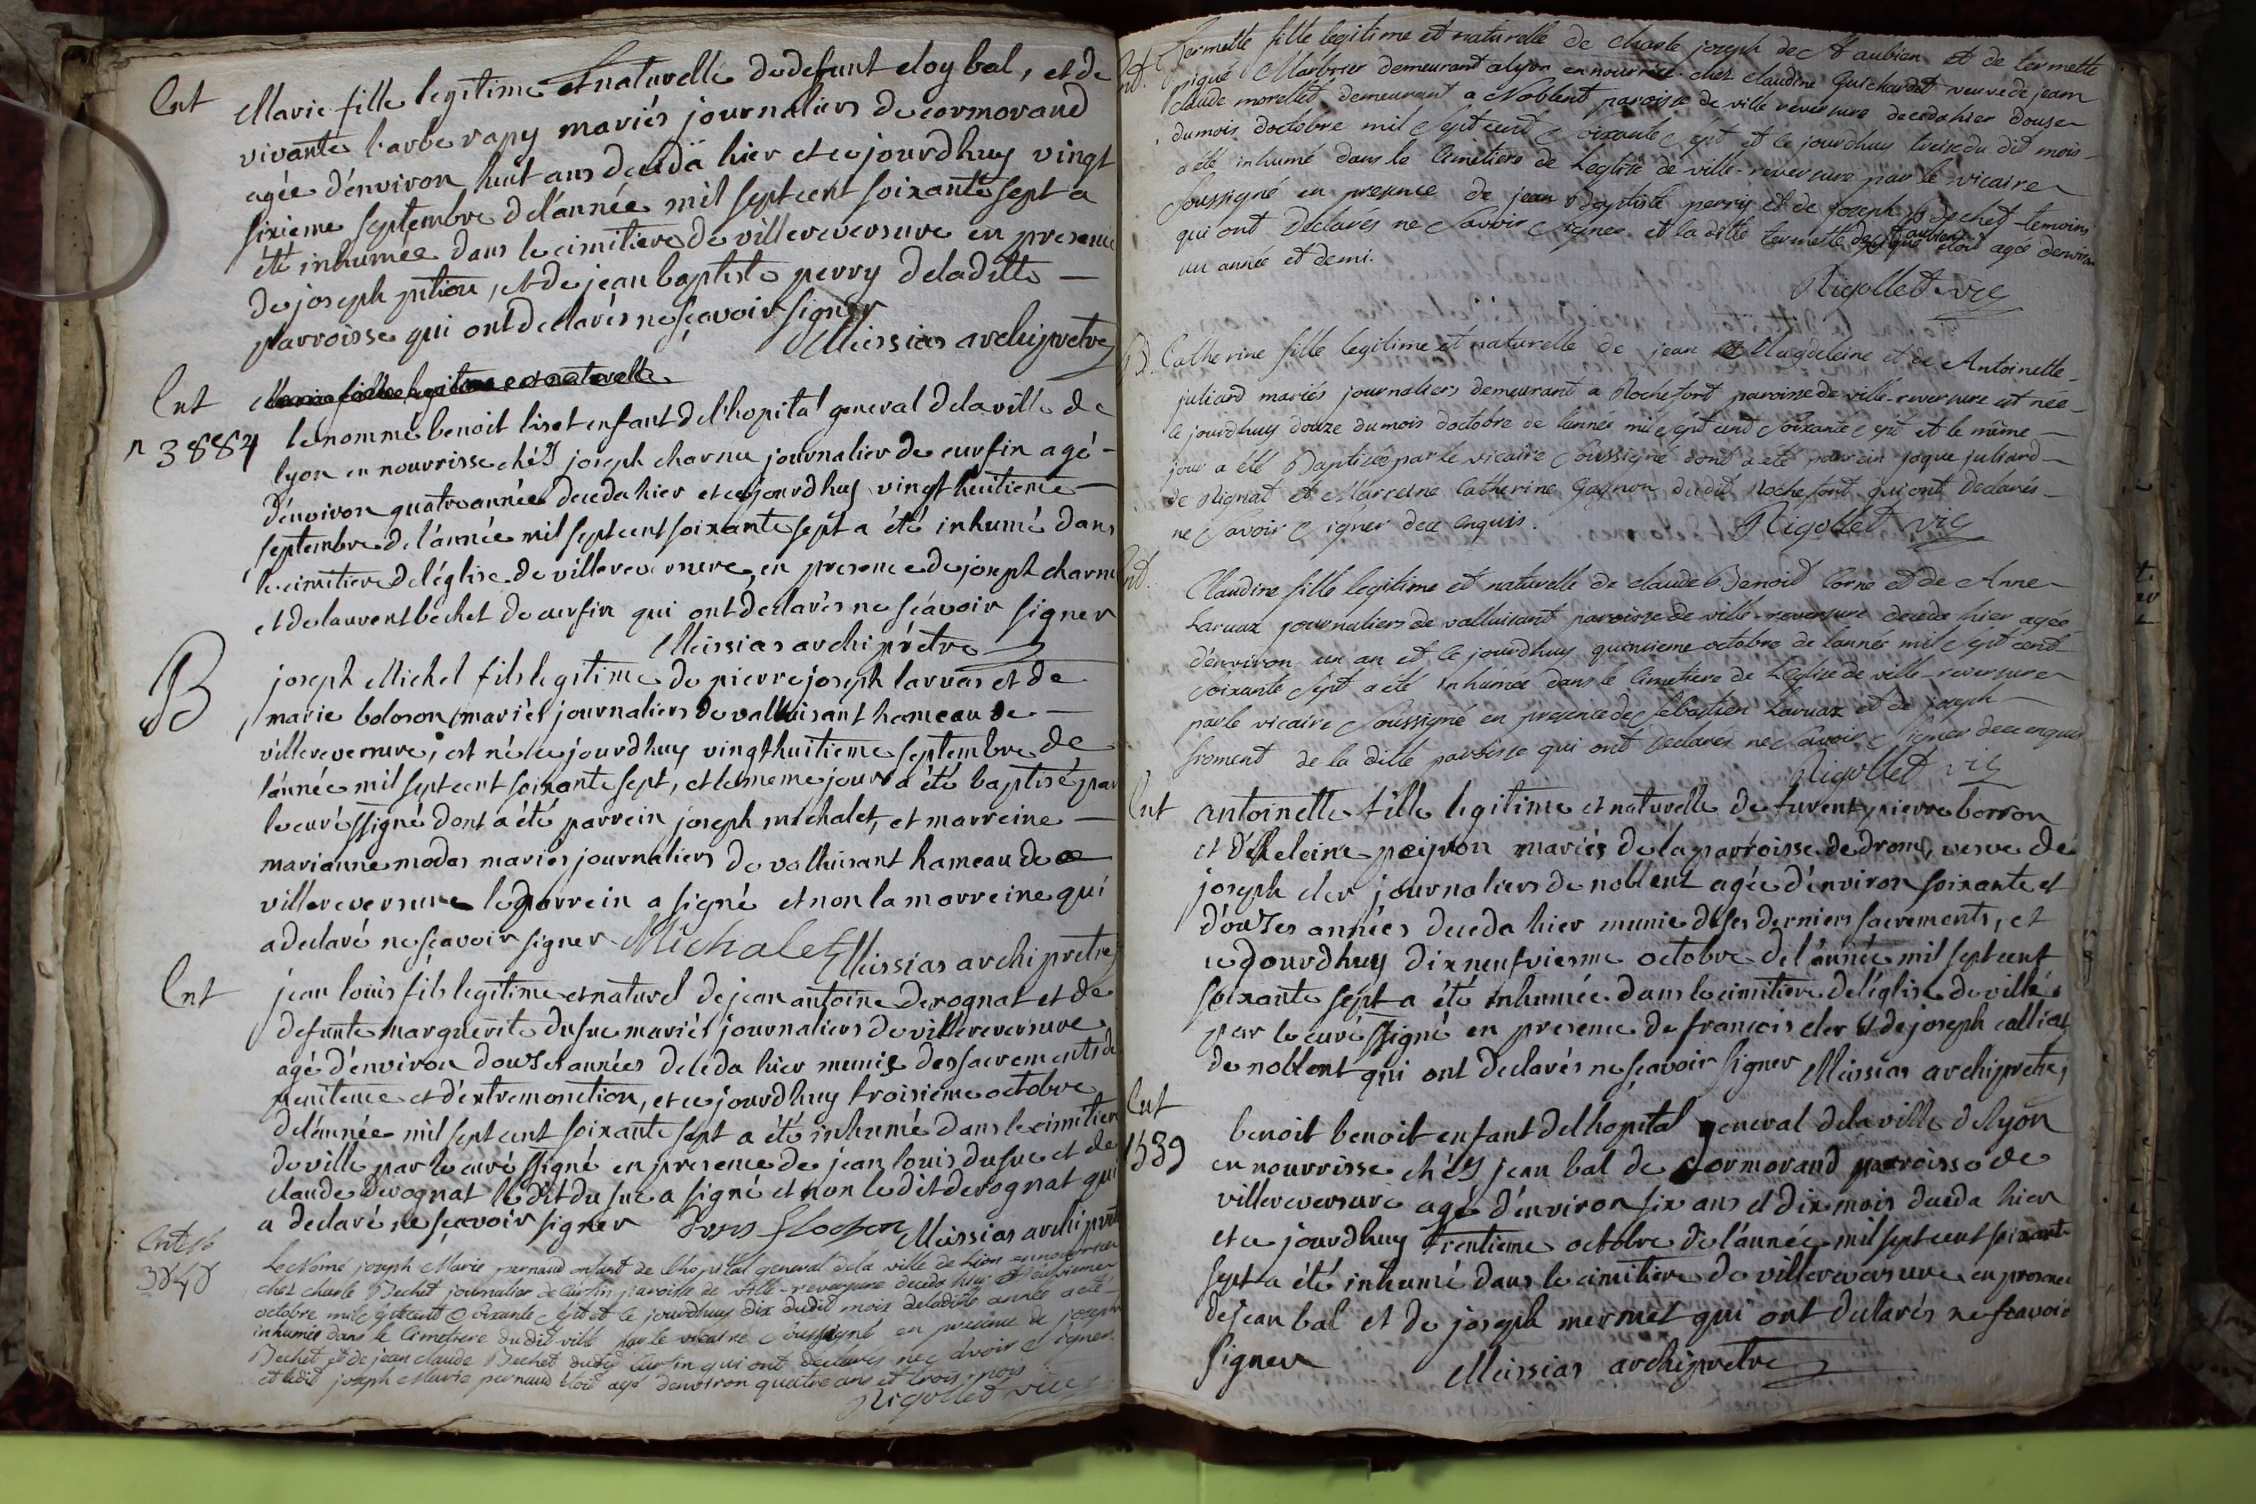 Ent
Marie fille legitime et naturelle de defunt eloy bal, et de
vivante barbe rapy mariés journaliers de cormorand
agée d'environ huit ans deceda hier et ce jourdhuy vingt
sixieme septembre de l'année mil sept cent soixante sept a
été inhumée dans le cimitiere de villereversure en presence
de joseph pition, et de jean baptiste perry de la ditte
parroisse qui ont declarés ne sçavoir signer
Meissias archipretre
Ent
Marie fille legitime et naturelle
n 3884
le nommé benoit liset enfant de l'hopital general de la ville de
lyon en nourrisse chéz joseph charnu journalier de curfin agé
d'environ quatre année deceda hier et ce jourdhuy vingt huitieme
septembre de l'année mil sept cent soixante sept a été inhumé dans
le cimitiere de l'église de villereversure en presence de joseph charnu
et de laurent béchet de curfin qui ont declarés ne sçavoir signer
Meissias archiprétre
B
joseph Michel fils legitime de pierre joseph larvas et de
marie boloson mariés journaliers de valluisant hameau de
villereversure, est né ce jourdhuy vingt huitieme septembre de
l'année mil sept cent soixante sept, et le meme jour a été baptisé par
le curé ssigné dont a été parrein joseph michalet, et marreine
marianne modas mariés journaliers de valluisant hameau de
villereversure le parrein a signé et non la marreine qui
a declaré ne sçavoir signer Michalet
Meissias archipretre
Ent
jean louis fils legitime et naturel de jean antoine derognat et de
defunte marguerite dusuc mariés journaliers de villereversure
agé d'environ douze années deceda hier munis des sacrements de
penitence et d'extremonction, et ce jourdhuy troisieme octobre
de l'année mil sept cent soixante sept a été inhumé dans le cimitiere
de ville par le curé ssigné en presence de jean louis dusuc et de
claude derognat le dit dusuc a signé et non le dit derognat qui
a declaré ne sçavoir signer
Meissias archipretre
Le Nomé joseph Marie pernaud enfant de Lhopital general de la ville de Lion en nourrice
chez charle Bechet journalier de Curfin paroisse de ville-reversure deceda hier neuvieme
octobre mil sept cent soixante sept et ce jourdhuy dix dudit mois de ladite année a été
inhumé dans le cimetiere dudit ville par le vicaire soussigné en presence de joseph
Bechet et de jean claude Bechet dudit Curfin qui ont declarés ne savoir signer
et ledit joseph Marie pernaud étoit agé denviron quatre ans et trois mois
Rigollet vic
termette fille legitime et naturelle de charle joseph de St aubien et de termette
piqué Marbrier demeurant a lyon en nourrice chez claudine Guichardet veuve de jean
claude morellet demeurant a Noblent paroisse de ville reversure deceda hier douse
du mois doctobre mil sept cent soixante sept et ce jourdhuy treise du dit mois
a été inhumé dans le Cimetiere de Leglise de ville-reversure par le vicaire
soussigné en presence de jean Baptiste perry et de joseph Bechet temoins
qui ont Declarés ne savoir signer et la dite termette de St aubien étoit agé denviron
un année et demi.
Rigollet vic
B.
Catherine fille legitime et naturelle de jean Magdeleine et de Antoinette
juliard mariés journaliers demeurant a Rochefort paroisse de ville-reversure est née
ce jourdhuy douze du mois doctobre de lannée mil sept cent soixante sept et le même
jour a été Baptisée par le vicaire soussigné dont a été parrain jaque juliard
de Rignat et Marreine Catherine Gagnon dudit Rochefort qui ont Declarés
ne savoir signer de ce enquis.
Rigollet vic
Ent.
Claudine fille legitime et naturelle de claude Benoit Corné et de Anne
Laruaz journaliers de valluisant paroisse de ville-reversure deceda hier agée
d'environ un an et ce jourdhuy quinsieme octobre de lannée mil sept cent
soixante sept a été inhumée dans le Cimetiere de Leglise de ville-reversure
par le vicaire soussigné en presence de sebastien Laruaz et de joseph
froment de la ditte paroisse qui ont Declarés ne savoir signer de ce enquis
Rigollet vic
Ent
antoinette fille legitime et naturelle de furent pierre borron
et d'heleine peipron mariés de la parroisse de drom, veuve de
joseph cler journaliers de noblent agée d'environ soixante et
d'ouzes années deceda hier munie de ses derniers sacrements, et
ce jourdhuy dix neufviesme octobre de l'année mil sept cent
soixante sept a été inhumée dans le cimitiere de l'église de ville
par le curé ssigné en presence de françois cler et de joseph calliat
de noblent qui ont declarés ne sçavoir signer Meissias archipretre
Ent
1539
benoit benoit enfant de l'hopital general de la ville de lyon
en nourrisse chéz jean bal de Cormorand parroisse de
villereversure agé d'environ six ans et dix mois deceda hier
et ce jourdhuy trentieme octobre de l'année mil sept cent soixante
sept a été inhumé dans le cimitiere de villereversure en presence
de jean bal et de joseph mermet qui ont declarés ne sçavoir
signer
Meissias archipretre